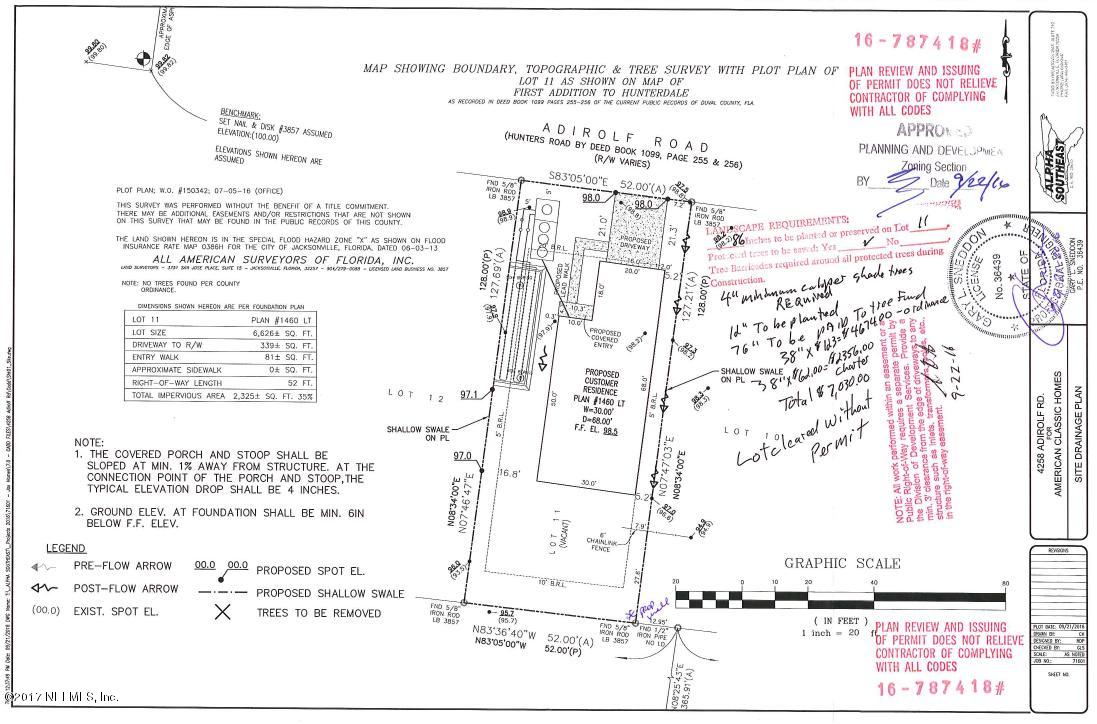 16-787418#
MAP SHOWING BOUNDARY, TOPOGRAPHIC & TREE SURVEY WITH PLOT PLAN OF
LOT 11 AS SHOWN ON MAP OF
FIRST ADDITION TO HUNTERDALE
AS RECORDED IN DEED BOOK 1099 PAGES 255-256 OF THE CURRENT PUBLIC RECORDS OF DUVAL COUNTY, FLA.
PLAN REVIEW AND ISSUING
OF PERMIT DOES NOT RELIEVE
CONTRACTOR OF COMPLYING
WITH ALL CODES
APPROVED
PLANNING AND DEVELOPMEN
Zoning Section
BY Date 9/22/16
99.80
(99.80)
99.82
(99.82)
EDGE OF ASP
BENCHMARK:
SET NAIL & DISK #3857 ASSUMED
ELEVATION:(100.00)
ELEVATIONS SHOWN HEREON ARE
ASSUMED
ADIROLF ROAD
(HUNTERS ROAD BY DEED BOOK 1099, PAGE 255 & 256)
(R/W VARIES)
PLOT PLAN; W.O. #150342; 07-05-16 (OFFICE)
THIS SURVEY WAS PERFORMED WITHOUT THE BENEFIT OF A TITLE COMMITMENT.
THERE MAY BE ADDITIONAL EASEMENTS AND/OR RESTRICTIONS THAT ARE NOT SHOWN
ON THIS SURVEY THAT MAY BE FOUND IN THE PUBLIC RECORDS OF THIS COUNTY.
THE LAND SHOWN HEREON IS IN THE SPECIAL FLOOD HAZARD ZONE "X" AS SHOWN ON FLOOD
INSURANCE RATE MAP 0386H FOR THE CITY OF JACKSONVILLE, FLORIDA, DATED 06-03-13
ALL AMERICAN SURVEYORS OF FLORIDA, INC.
LAND SURVEYORS - 3751 SAN JOSE PLACE, SUITE 15 - JACKSONVILLE, FLORIDA, 32257 - 904/279-0088 - LICENSED LAND BUSINESS NO. 3857
NOTE: NO TREES FOUND PER COUNTY
ORDINANCE.
DIMENSIONS SHOWN HEREON ARE PER FOUNDATION PLAN
LOT 11 PLAN #1460 LT
LOT SIZE 6,626± SQ. FT.
DRIVEWAY TO R/W 339± SQ. FT.
ENTRY WALK 81± SQ. FT.
APPROXIMATE SIDEWALK 0± SQ. FT.
RIGHT-OF-WAY LENGTH 52 FT.
TOTAL IMPERVIOUS AREA 2,325± SQ. FT. 35%
FND 5/8"
IRON ROD
LB 3857
S83°05'00"E 52.00'(A)
98.0
98.0
97.5
FND 5/8"
IRON ROD
LB 3857
21.0'
21.3'
PROPOSED
DRIVEWAY
B.R.L.
20.0'
5.2'
18.0'
10.0'
0.3'
PROPOSED
COVERED
ENTRY
(98.2)
128.00'(P)
127.69'(A)
127.21'(A)
128.00'(P)
PROPOSED
CUSTOMER
RESIDENCE
PLAN #1460 LT
W=30.00'
D=68.00'
F.F. EL. 98.5
50.0'
68.0'
30.0'
5' B.R.L.
5' B.R.L.
LOT 12
97.1
SHALLOW SWALE
ON PL
SHALLOW SWALE
ON PL
97.0
16.8'
N08°34'00"E
N07°46'47"E
N07°47'03"E
N08°34'00"E
5.2'
97.0
(96.6)
94.9
(94.9)
7.9'
6'
CHAINLINK
FENCE
LOT 11
(VACANT)
10' B.R.L.
27.6'
96.0
(93.5)
95.7
(95.7)
FND 5/8"
IRON ROD
LB 3857
N83°36'40"W 52.00'(A)
N83°05'00"W 52.00'(P)
FND 5/8"
IRON ROD
LB 3857
FND 1/2"
IRON PIPE
NO I.D.
12.95'
N08°25'43"E
365.91'(A)
LANDSCAPE REQUIREMENTS:
86 Inches to be planted or preserved on Lot 11
Protected trees to be saved: Yes ✓ No
Tree Barricades required around all protected trees during
Construction.
4" minimum caliper shade trees
REQUIRED
12" To be planted
76" To be pAID To tree Fund
38" x $123= $4674.00 - ordinance
38" x $62.00= $2356.00 charter
Total $7,030.00
Lot cleared without
Permit
9-22-16
NOTE: All work performed within an easement or a
Public Right-of-Way requires a separate permit by
the Division of Development Services. Provide a
min. 3' clearance from the edge of driveways to any
structure such as inlets, transformers, poles, etc.,
in the right-of-way easement.
GARY L. SNEDDON
LICENSE
No. 36439
STATE OF
ALPHA
SOUTHEAST
GARY L. SNEDDON
P.E. NO. 36439
4258 ADIROLF RD.
FOR
AMERICAN CLASSIC HOMES
SITE DRAINAGE PLAN
NOTE:
1. THE COVERED PORCH AND STOOP SHALL BE
SLOPED AT MIN. 1% AWAY FROM STRUCTURE. AT THE
CONNECTION POINT OF THE PORCH AND STOOP,THE
TYPICAL ELEVATION DROP SHALL BE 4 INCHES.
2. GROUND ELEV. AT FOUNDATION SHALL BE MIN. 6IN
BELOW F.F. ELEV.
LEGEND
PRE-FLOW ARROW 00.0 00.0 PROPOSED SPOT EL.
POST-FLOW ARROW PROPOSED SHALLOW SWALE
(00.0) EXIST. SPOT EL. TREES TO BE REMOVED
GRAPHIC SCALE
20 0 20 40 80
( IN FEET )
1 inch = 20 ft.
PLAN REVIEW AND ISSUING
OF PERMIT DOES NOT RELIEVE
CONTRACTOR OF COMPLYING
WITH ALL CODES
16-787418#
REVISIONS
PLOT DATE: 09/21/2016
DRAWN BY: CK
DESIGNED BY: RDP
CHECKED BY: GLS
SCALE: AS NOTED
JOB NO.: 71601
SHEET NO.
©2017 NEFMLS, Inc.